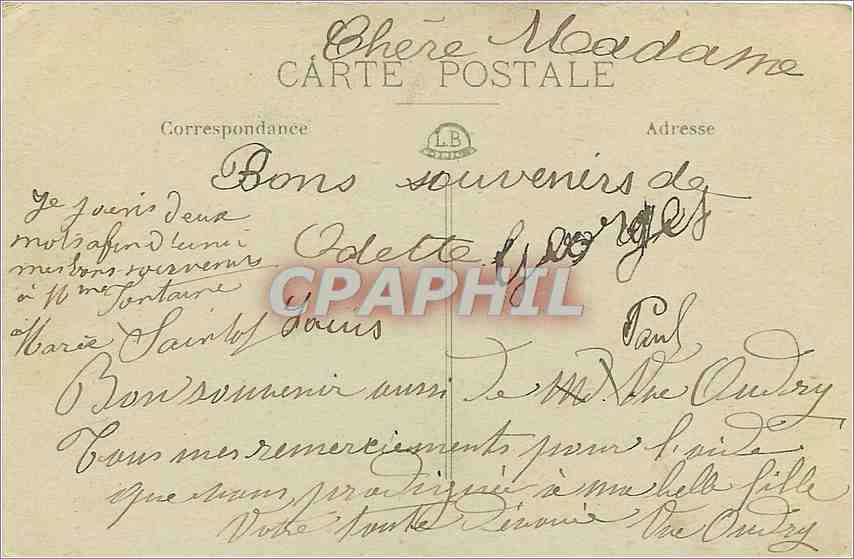 Chère Madame
CARTE POSTALE
Correspondance
Adresse
L.B
DIJON
Bons souvenirs de
Odette Georges
Paul
Je joins deux
mots afin d'unir
mes bons souvenirs
à Mme Fontaine
à
Marie Louis
CPAPHIL
Bon souvenir aussi de Vve Oudry
Tous mes remerciements pour l'aide
que vous prodiguée à ma belle fille
Votre toute dévouée Vve Oudry